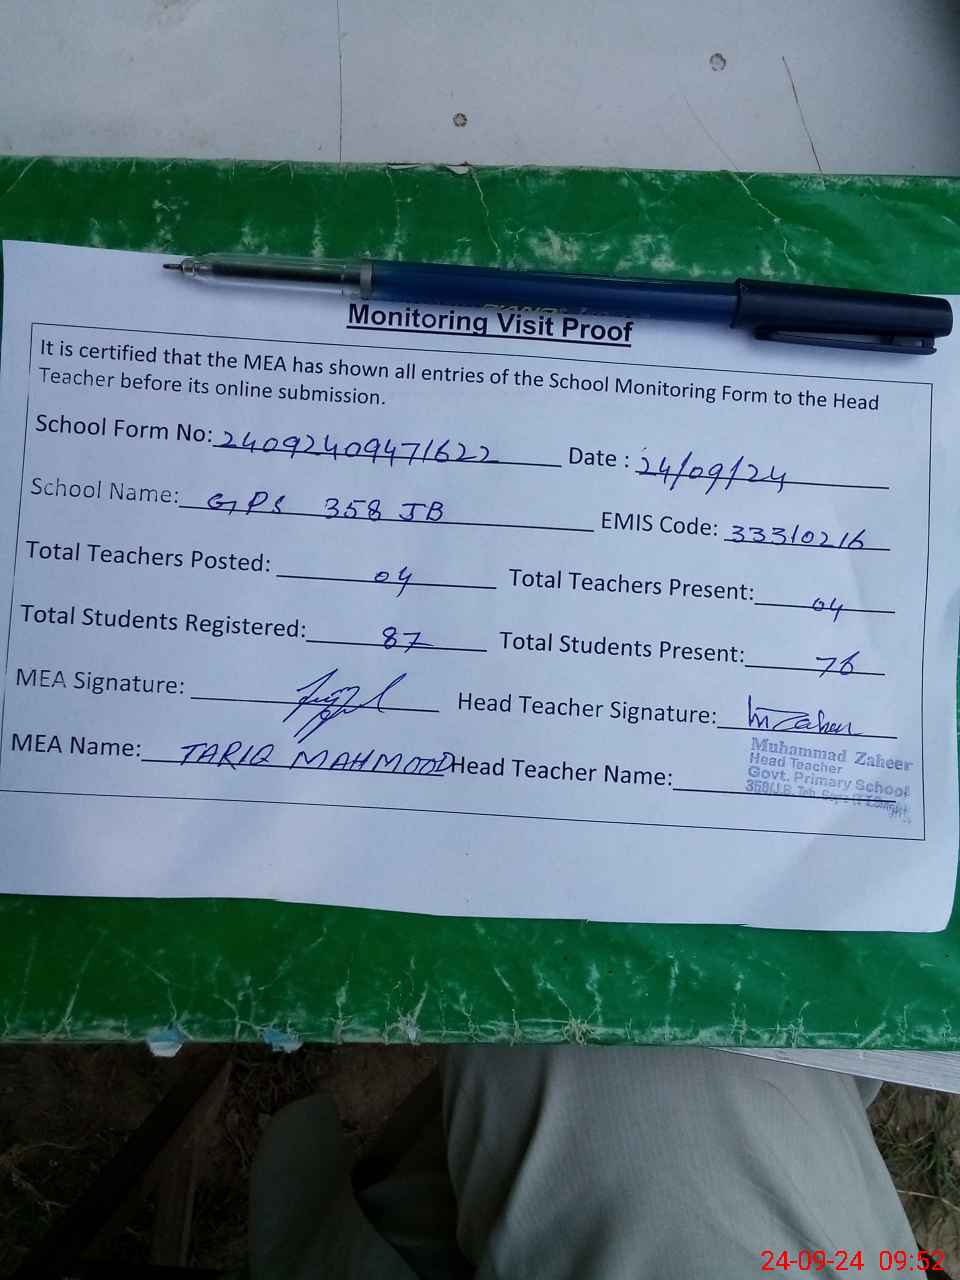 Monitoring Visit Proof
It is certified that the MEA has shown all entries of the School Monitoring Form to the Head
Teacher before its online submission.
School Form No: 24092409471622 Date : 24/09/24
School Name: GPS 358 JB EMIS Code: 33310216
Total Teachers Posted: 04 Total Teachers Present: 04
Total Students Registered: 87 Total Students Present: 76
MEA Signature: Head Teacher Signature: M Zaheer
MEA Name: TARIQ MAHMOOD Head Teacher Name:
Muhammad Zaheer
Head Teacher
Govt. Primary School
358/J.B. Teh.
24-09-24 09:52